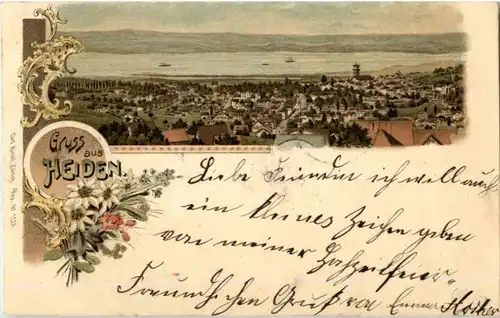 Gruss aus
HEIDEN.
Liebe Freundin ich will auch
ein kleines Zeichen geben
von meiner Hochzeitfeier.
Freundlichen Gruß von Emma